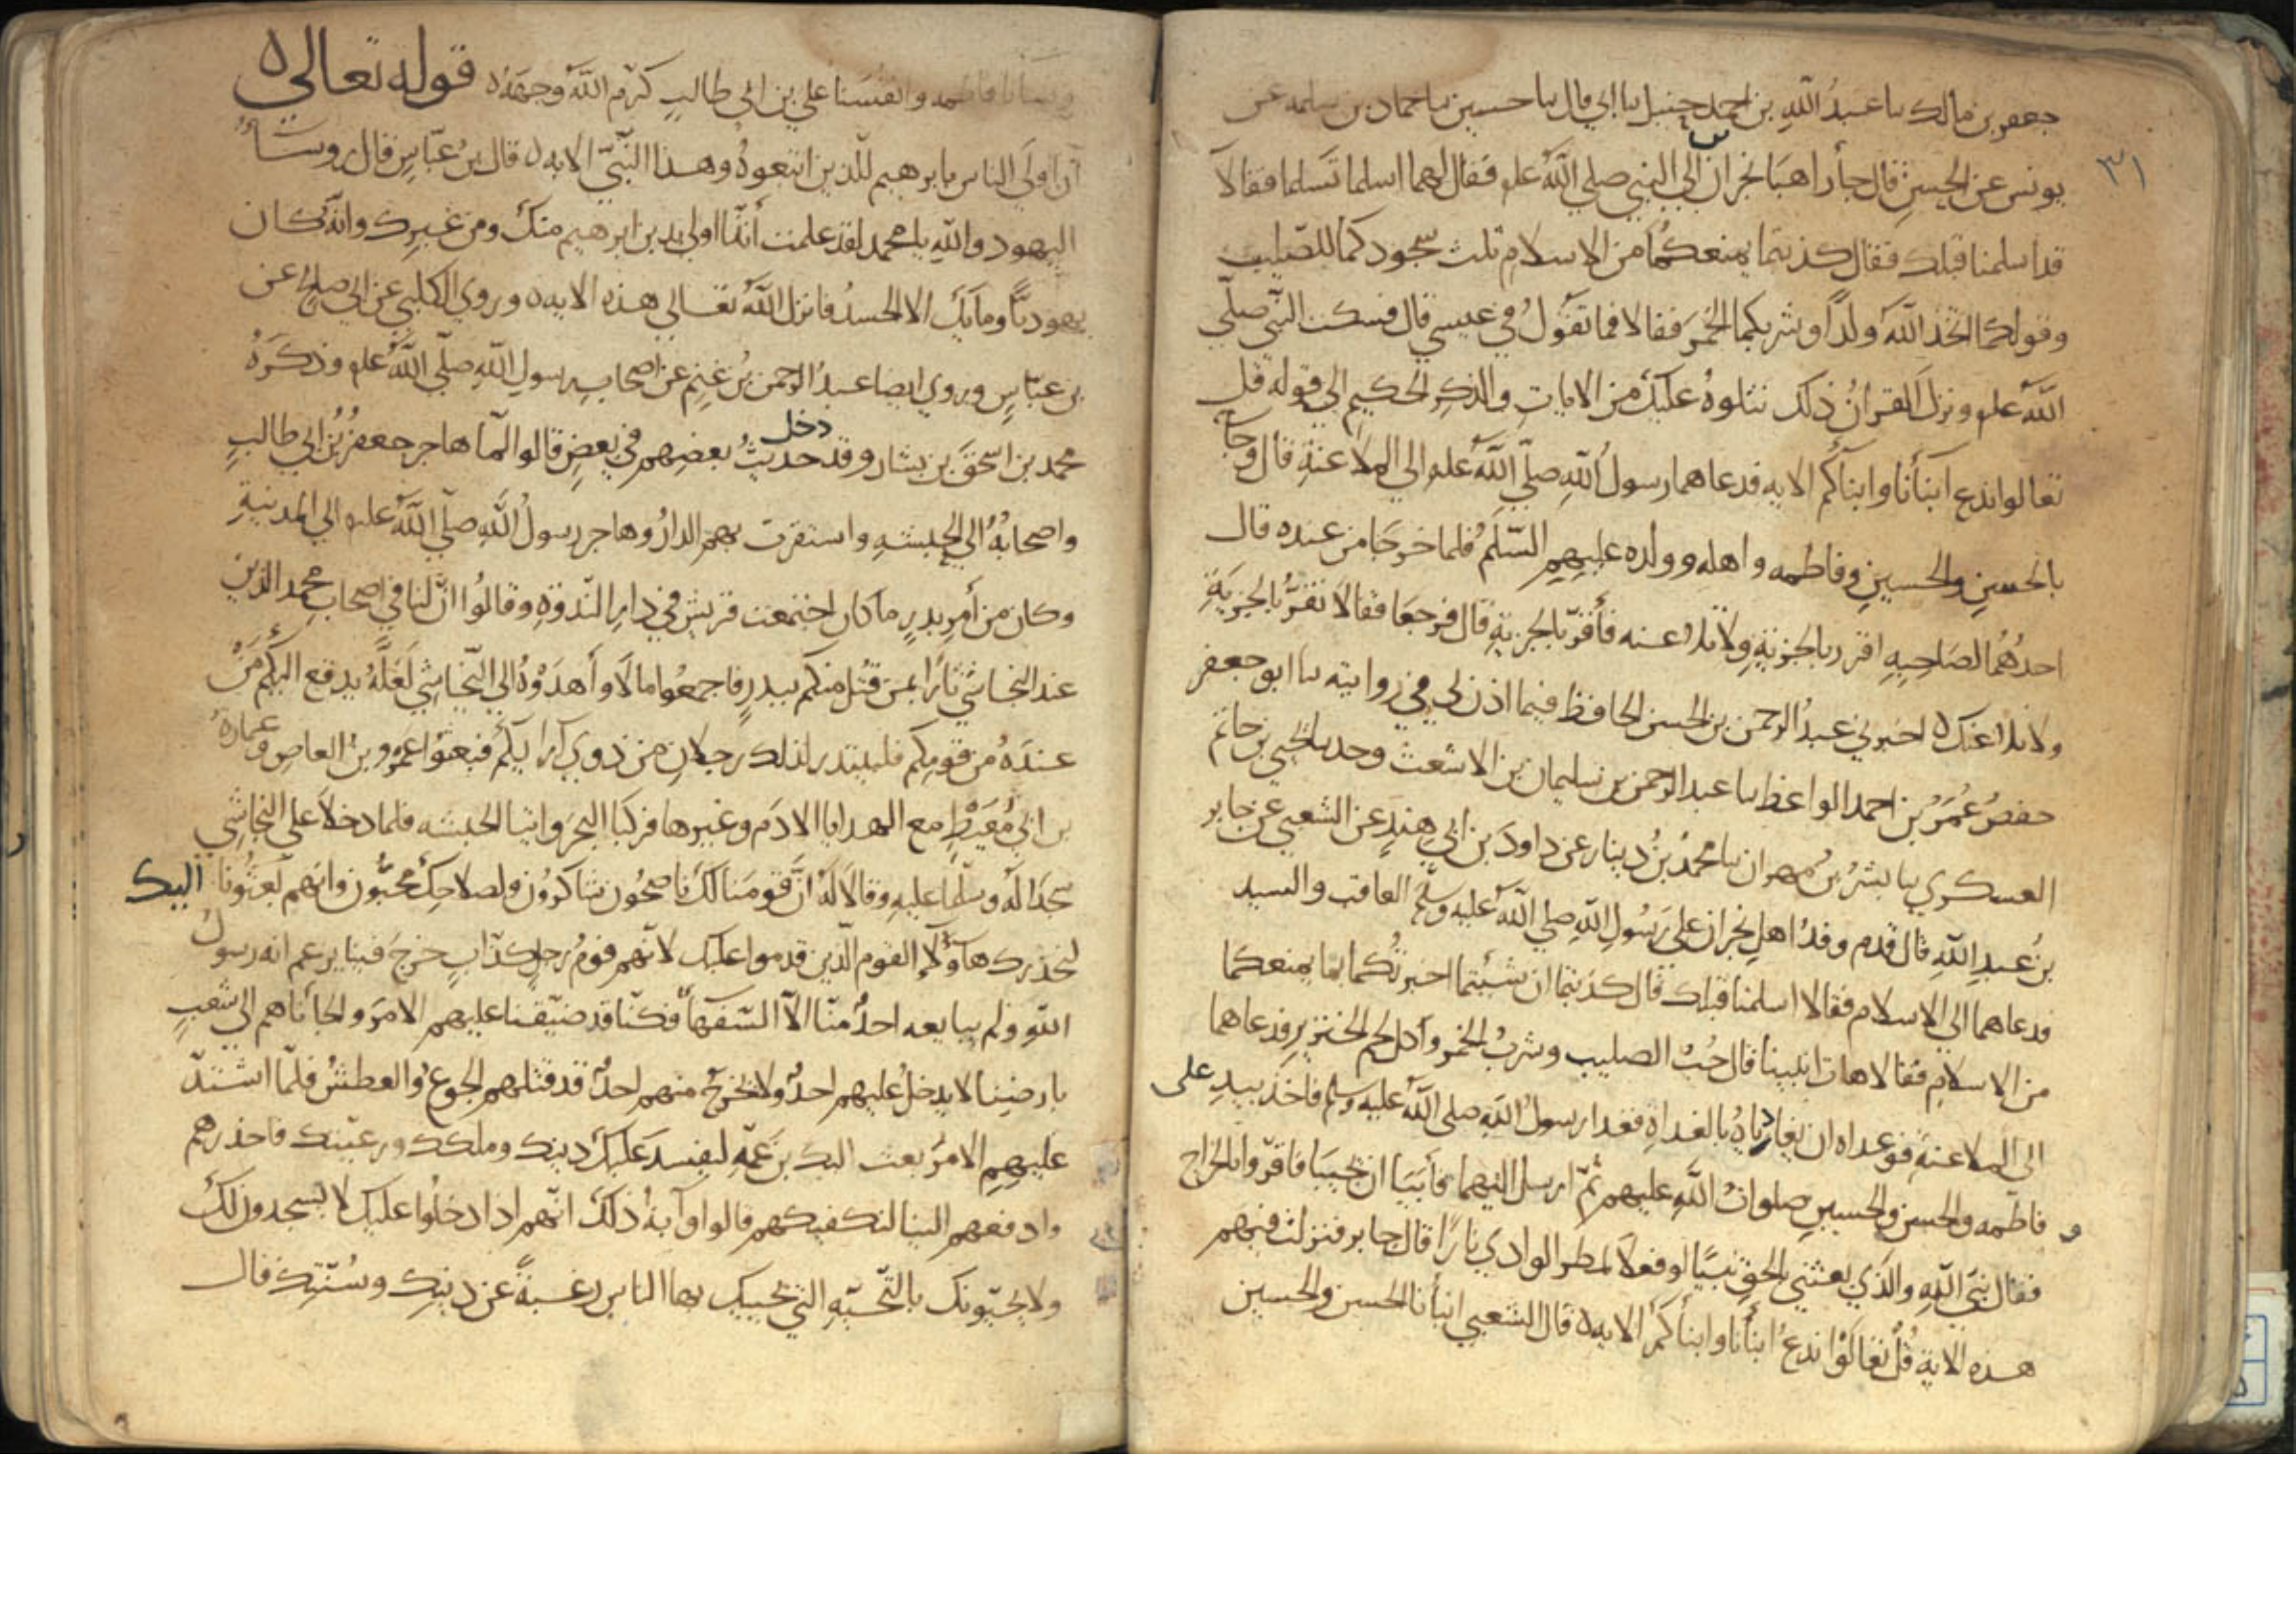 جعفر بن مالك ىا عبدُ اللهِ بن احمد حنبل ىا ابي قال ىا حسين ىا حماد بن سلمه عن
٣١
يونس عن الحسنِ قال جأ راهبَا نجران الي النبي صلي اللهُ علىه فقال لهما اسلما تسلما فقالا
قد اسلمنا قبلك فقال كذبتما يمنعكما من الاسلامِ ثلث سجودكما للصّليب
وقولكما اتخذ اللهَ ولدًا وشربكما الخمرَ فقالا فما تقولُ في عيسي قال فسكت النبّي صلّي
اللهُ علىه ونزلَ القرانُ ذلك نتلوهُ عليكَ من الاياتِ والذكرِ الحكيمِ الي قوله قل
تعالوا ندع ابنآنا وابنآكم الايه فدعاهما رسولُ اللهِ صلّي اللهُ علىه الي الملاعنةِ قال وجآ
بالحسنِ والحسينِ وفاطمه واهله وولده عليهم السّلمُ فلما خرجَا من عنده قال
احدُهُما لصَاحبِهِ اقرر بالجزيةِ ولا تلاعنه فأقرّ بالجزيةِ قال فرجعَا فقالا نقرُّ بالجزيَةِ
ولا نلاعنك ه اخبرني عبدُ الرحمن بن الحسن الحافظ فيما اذن لي في روايته ىا ابو جعفر
حفصُ عُمَرُ بن احمد الواعظ ىا عبد الرحمن بن سليمان بن الاشعث وحدىا يحيي بن حاتم
العسكري ىا بشرُ بنُ مهران ىا محمدُ بنُ دينار عن داودَ بن ابي هندٍ عن الشعبي عن جابر
بنُ عبدِ اللهِ قال قدم وفدُ اهلِ نجران علي رَسُولِ اللهِ صلي اللهُ عليه وسلّم العاقب والسيد
فدعاهما الي الاسلام فقالا اسلمنا قبلك قال كذبتما ان شئتما اخبرتُكما بما يمنعكما
من الاسلامِ فقالا هات انبينا قال حُبُ الصليب وشربُ الخمر وأكل لحم الخنزيرِ فدعاهما
الي الملاعنةِ فوعداه ان يغادياهُ بالغداةِ فغدا رسولُ اللهِ صلي اللهُ عليه وسلم فاخذ بيدِ على
و فاطمه والحسن والحسينِ صلواتُ اللهِ عليهم ثمّ ارسل اليهما فأبيَا ان يجيبَا فاقرّوا بالخراج
فقال نبيّ اللهِ والذي بعثني بالحقِ نبيًا لو فعلا لمطر الوادي نارًا قال جابر فنزلت فيهم
هذه الاية قُلْ تعالَوْا ندعُ ابنأنا وابنأكمْ الايه ه قال الشعبي ابنأنا الحسن والحسين
ونسآنا فاطمه وانفسَنا علي بن ابي طالبٍ كرّم اللهُ وجهَهُ ه قوله تعالي ه
ان اولَي الناس بابرهيم للّذين اتبعوهُ وهذا النّبيّ الايه ه قال بنُ عبّاسٍ قال روسَآءُ
اليهود واللهِ يا محمد لقد علمت أنّا اولي بدين ابرهيم منكَ ومن غيرك وانهُ كان
يهوديًّا وما بِكَ الا الحسدُ فانزل اللهُ تعالي هذه الايه ه وروي الكلبي عن ابي صلحٍ عن
بن عبّاسٍ وروي ايضا عبدُ الرحمن بنُ غنمٍ عن اصحابِ رسولِ اللهِ صلّي اللهُ علىه وذكرَهُ
محمد بن اسحقَ بن يشار وقد دخل حديثُ بعضِهم في بعضِ قالوا لمّا هاجر جعفرُ بنُ ابي طالبٍ
واصحابُهُ الي الحبشهِ واستقرت بهم الدارُ وهاجر رسولُ اللهِ صلّي اللهُ عليه الي المدينةِ
وكان من أمرِ بدرٍ ما كان اجتمعت قريش في دارِ النّدوةِ وقالُوا انّ لنا في اصحابِ محمد الذين
عند النجاشي ثارًا بمن قُتل منكم ببدرٍ فاجمعُوا مالًا وأهدَوْهُ الي النّجاشي لعَلّهُ يدفع اليكم مَنْ
عندَهُ من قومِكم فليبتدر لذلك رجلانِ من ذوي رأيكم فبعثوا عَمرو بن العاصِ وعمارة
بن ابي مُعَيْطٍ مع الهدايا الادَم وغيرها فركبَا البحرَ واتيا الحبشه فلما دخلا علي النجاشي
سجَدا لَهُ وسلّما عليهِ وقالا لَهُ انَّ قومَنا لكَ ناصحُون شاكرُون ولصلاحِكَ محبُّون وانهم بعَثُونا اليك
لنحذرك هآؤلاءِ القوم الّذين قدموا عليك لانّهم قومُ رجلٍ كذّابٍ خرجَ فينا يزعم انه رسول
اللهِ ولم يبايعه احدٌ منّا الّا السّفهآُ فكنّا قد ضيّقنا عليهم الامرَ والجأناهم الي شعبٍ
بارضِنا لا يدخلُ عليهم احدٌ ولا يخرجُ منهم احدٌ قد قتلهم الجوعُ والعطشُ فلمّا اشتدّ
عليهمِ الامرُ بعث اليك بن عَمّهِ ليفسدَ عليكَ دينك وملكك ورعيّتك فاحذرهم
وادفعهم الينا لنكفيكهم قالوا وآيةُ ذلكَ انّهم اذا دخلُوا عليك لا يسجدون لكَ
ولا يحيّونك بالتّحيّهِ التي يحييك بها الناس رغبةً عن دينك وسُنّتِك قال